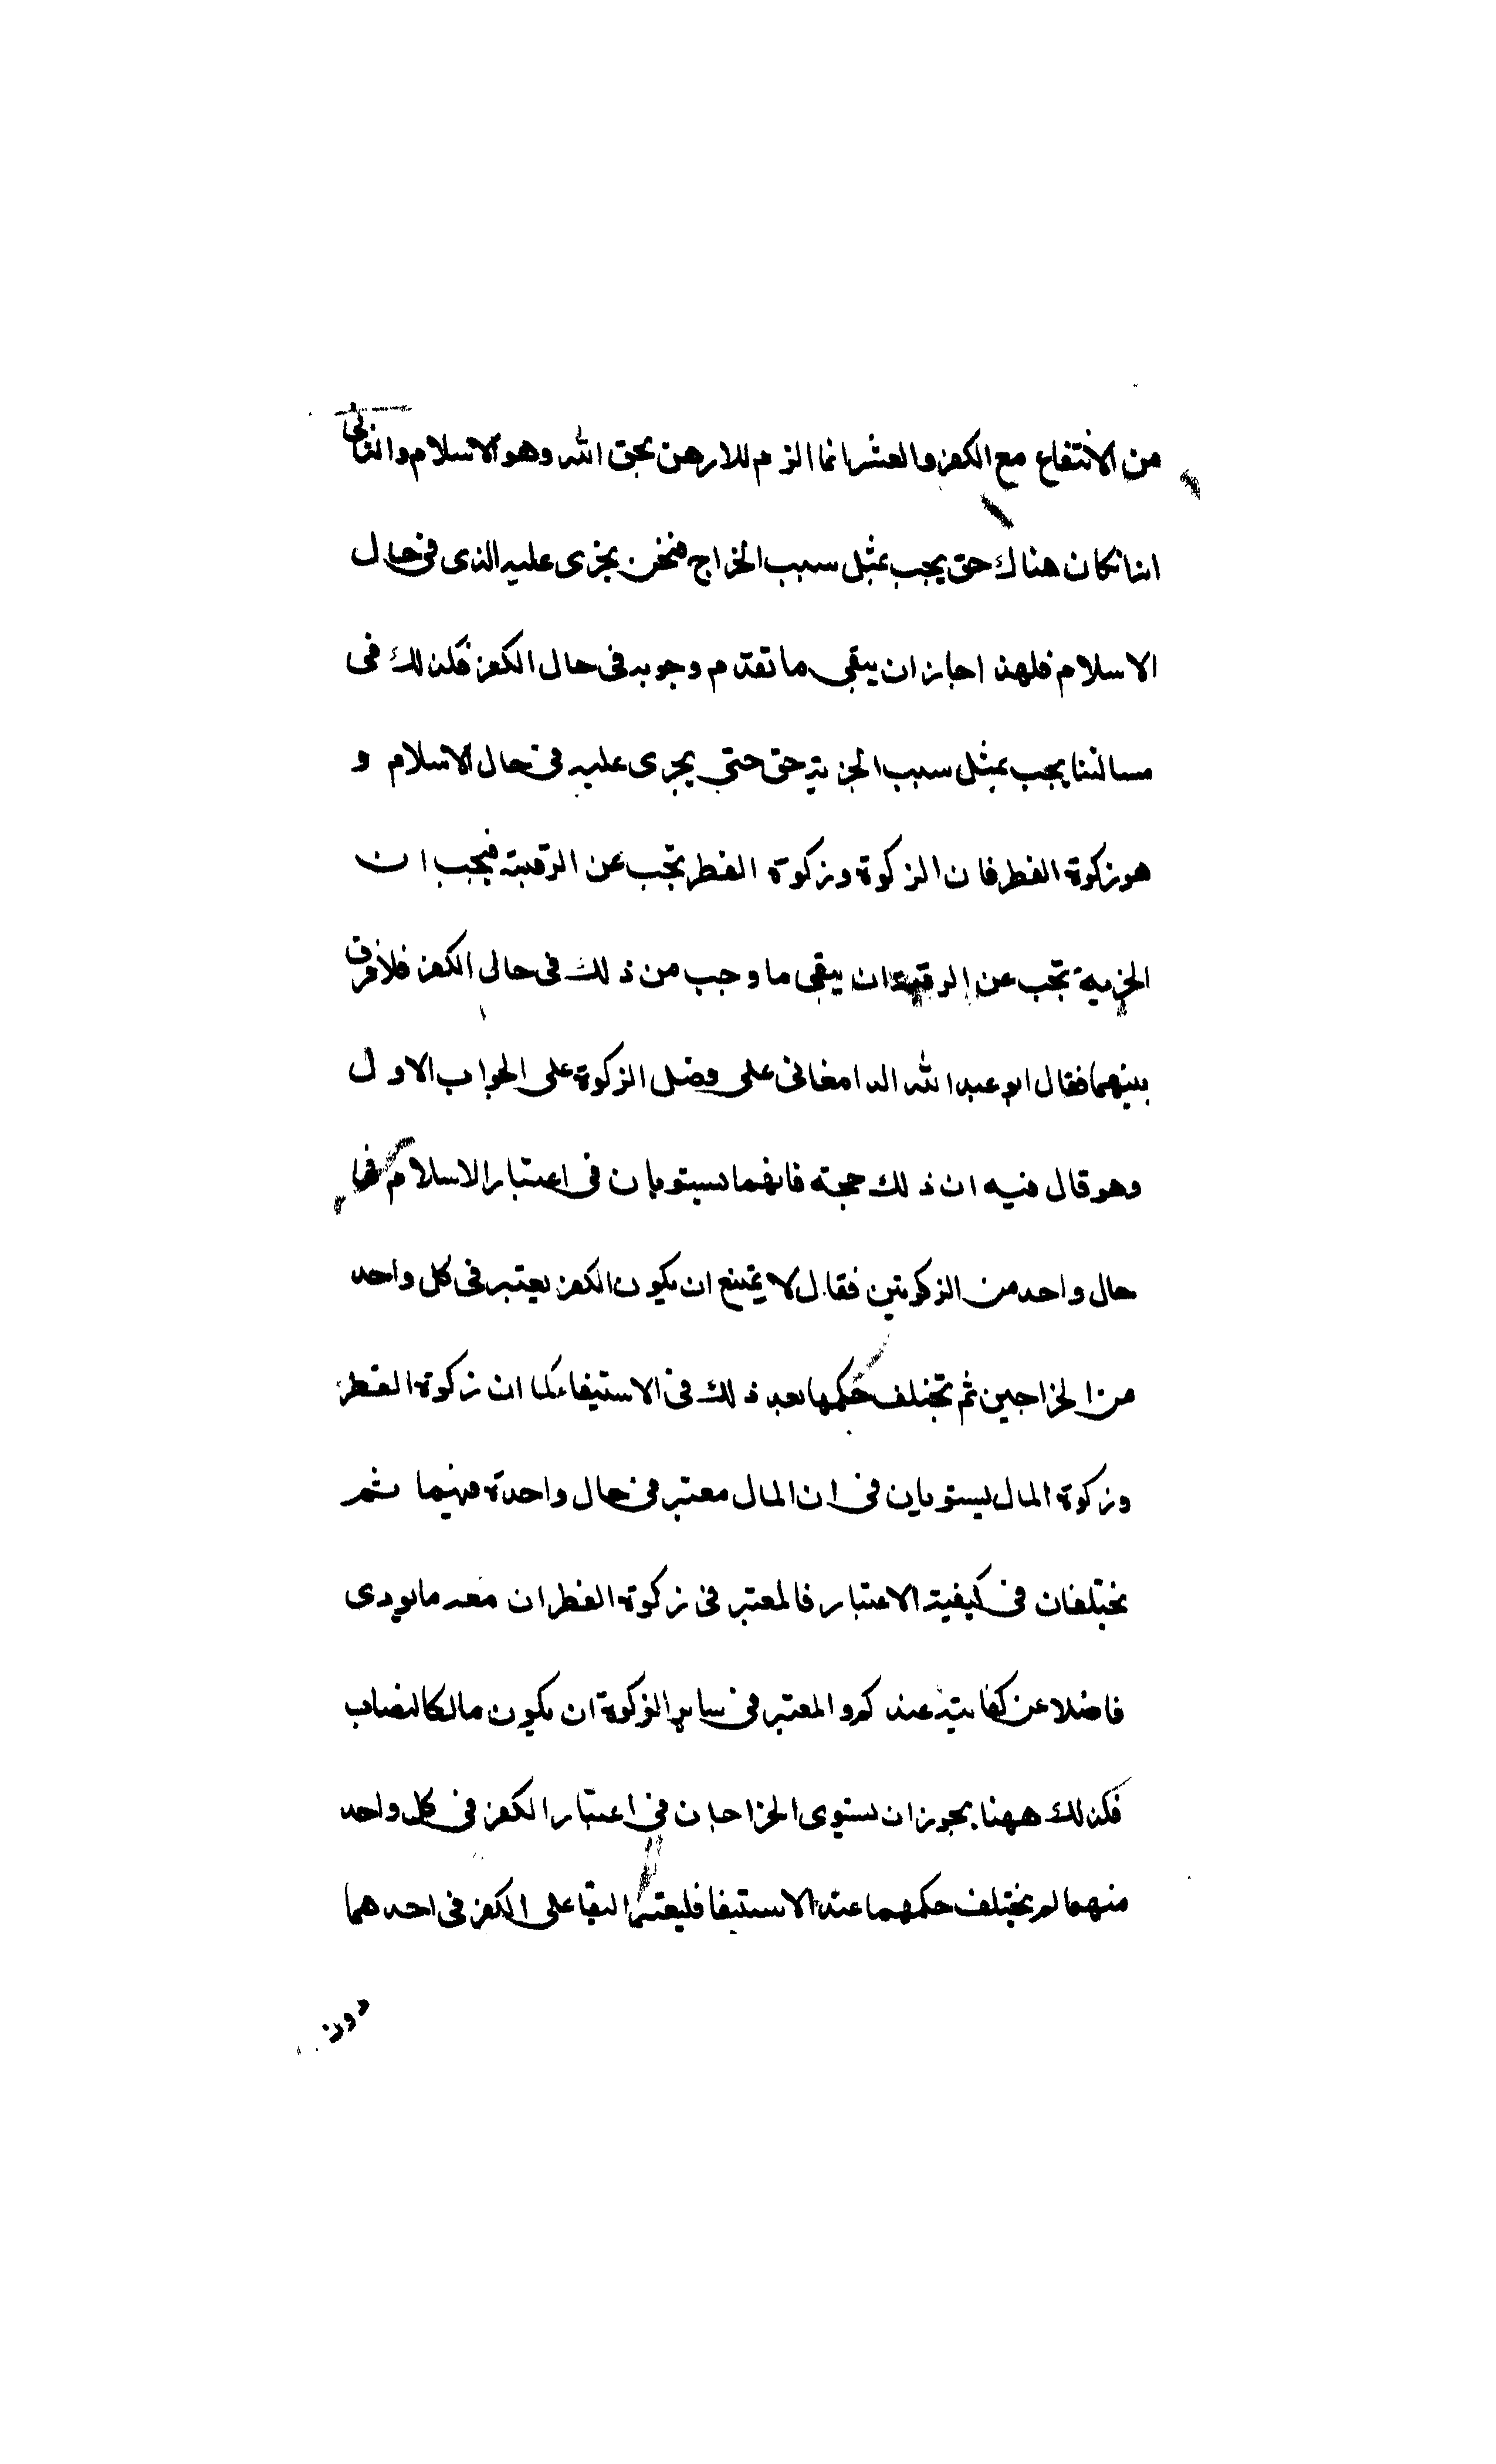 من الانتفاع مع الكفر والعشر انما الزم للارض بحق الله وهو الاسلام والثانى
اننا كان هناك حق يجب بمثل سبب الخراج فنحن يجزى عليه الذى فى حال
الاسلام فلهذا جاز ان يبقى ما تقدم وجوبه فى حال الكفر فكذلك فى
مسالتنا يجب بمثل سبب الجزية حق حتى يجرى عليه فى حال الاسلام و
هو زكوة الفطر فان الزكوة وزكوة الفطر تجب عن الرقبة فيجب ان
الجزية تجب عن الرقبة ان يبقى ما وجب من ذلك فى حال الكفر فلا فرق
بينهما فقال ابو عبد الله الدامغانى على فضل الزكوة على الجواب الاول
وهو قال فيه ان ذلك حجة فانهما يستويان فى اعتبار الاسلام فى
حال واحد من الزكوتين فقال لا يمتنع ان يكون الكفر يعتبر فى كل واحد
من الخراجين ثم تختلف حكمها بعد ذلك فى الاستيفاء كما ان زكوة الفطر
وزكوة المال يستويان فى ان المال معتبر فى حال واحدة فيهما ثم
يختلفان فى كيفية الاعتبار فالمعتبر فى زكوة الفطر ان معه ما يودى
فاضلا عن كفايته عندكم والمعتبر فى ساير الزكوة ان يكون مالكا لنصاب
فكذلك ههنا يجوز ان يستوى الخراجان فى اعتبار الكفر فى كل واحد
منهما لم يختلف حكمهما عند الاستيفا فليعتبر البقا على الكفر فى احدهما
دون